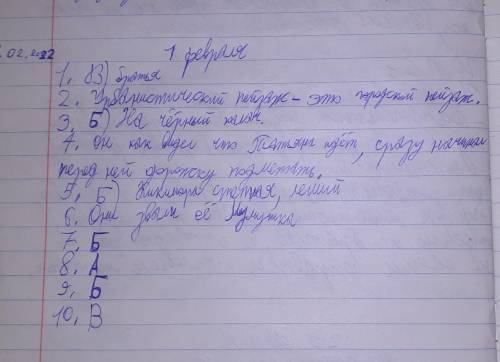 1.02.2022
1 февраля
1. В) братья
2. Урбанистический пейзаж - это городской пейзаж.
3. Б) На чёрный
4. Он как видел что Татьяна идёт, сразу начинал
перед ней дорожку подметать.
5. Б) Кикимора леший
6. Они звали её Мумушка
7. Б
8. А
9. Б
10. В